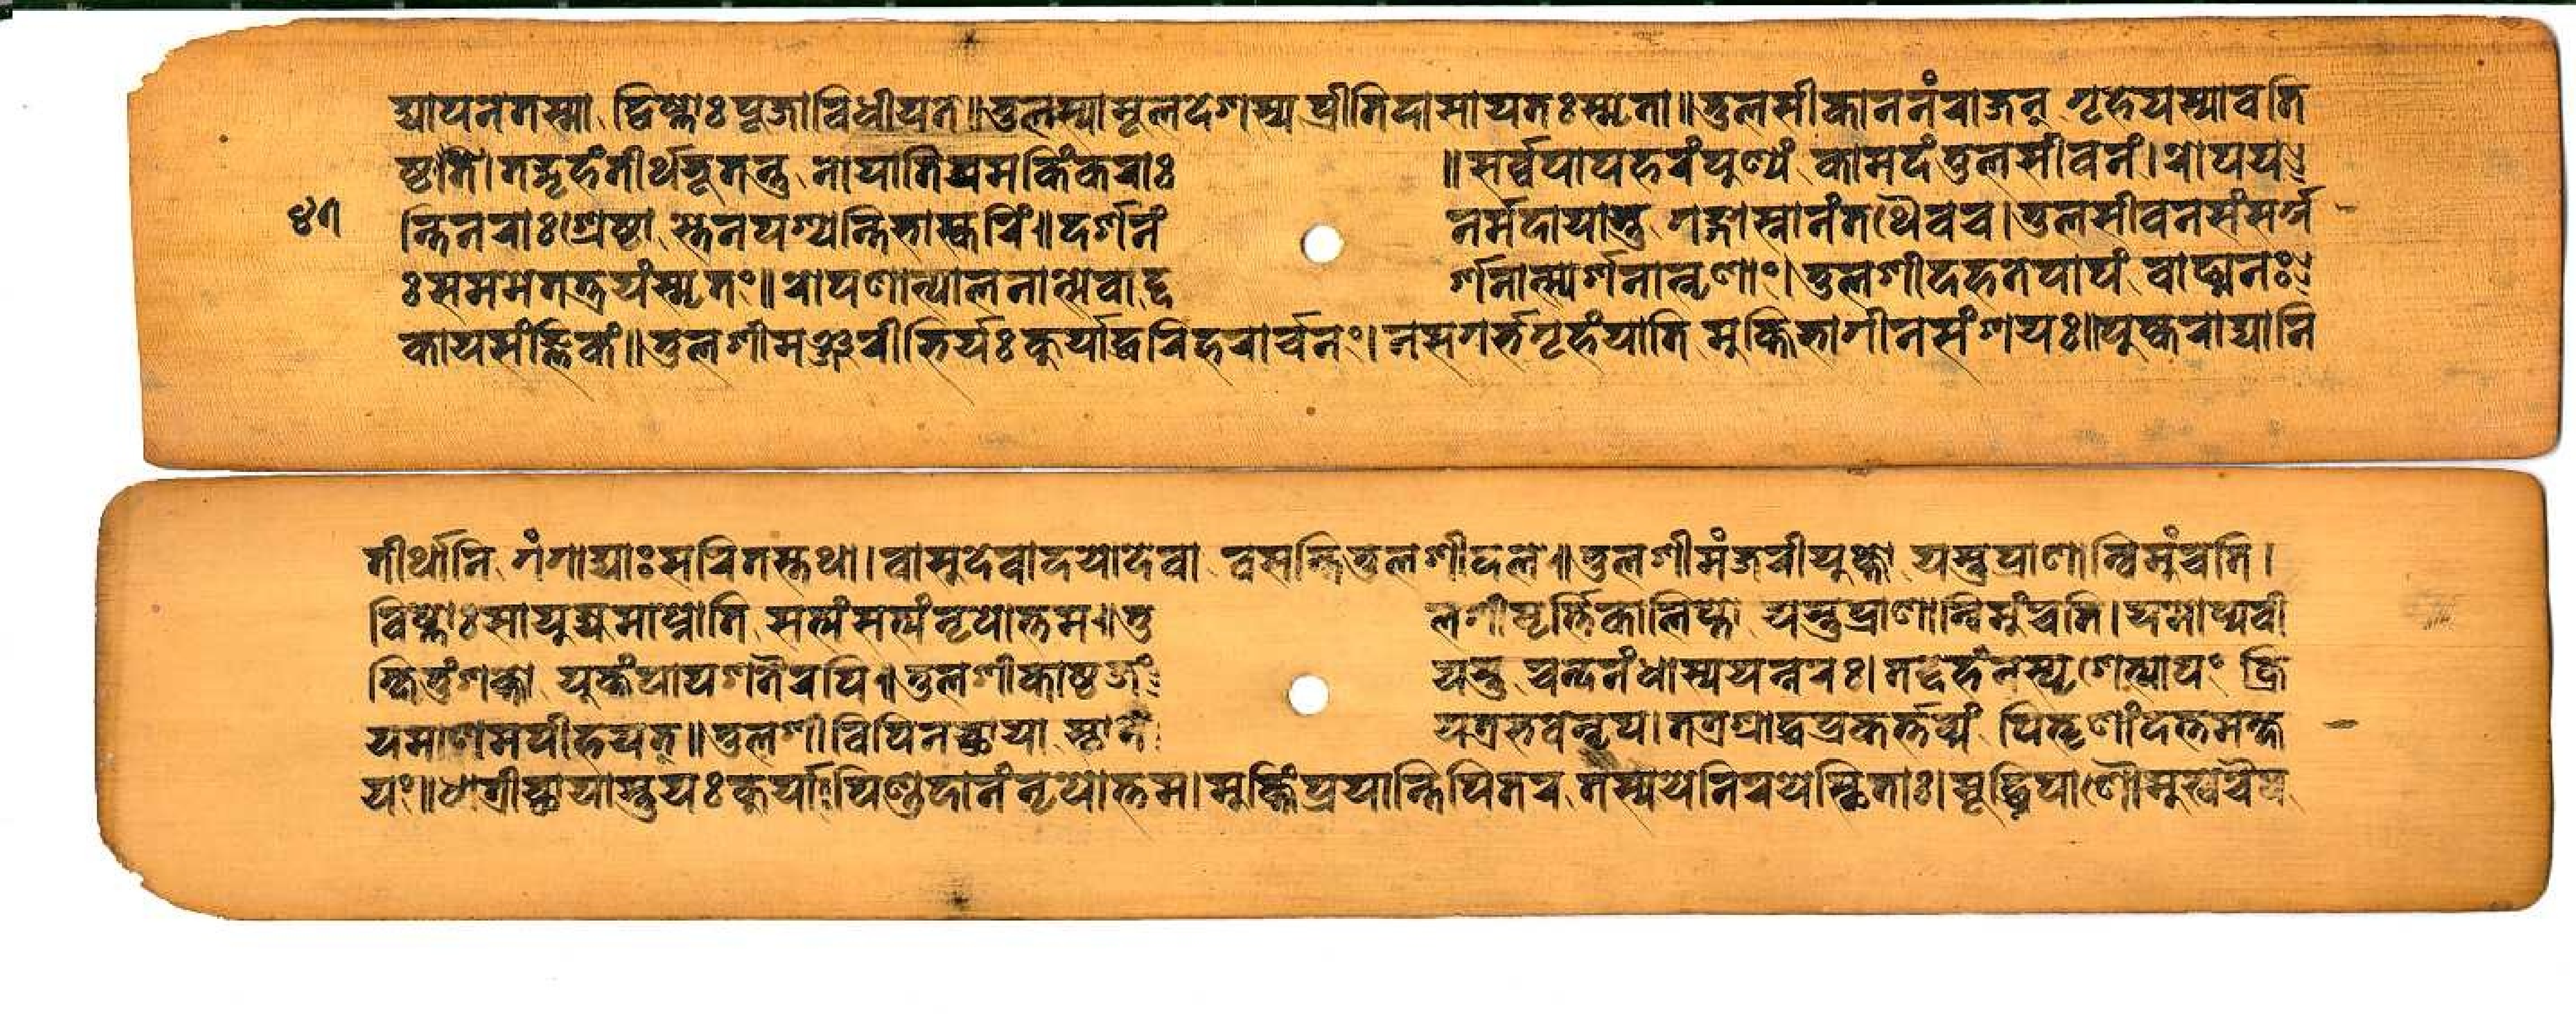 द्यापनेतस्या द्विष्णोः पूजाविधीयते॥तुलस्यामूलदेशस्य प्रीतिदासायतःस्मृता॥तुलसीकाननंराजन् गृहेयस्यावति
ष्ठति।तद्गृहंतीर्थभूतन्तु नायातियमकिंकराः ॥सर्व्वपापहरंपुण्यं कामदंतुलसीवनं।रोपय
४१ न्तिनराःश्रेष्ठा स्तेनपश्यन्तिभास्करिं॥दर्शनं नर्मदायास्तु गङ्गास्नानंतथैवच।तुलसीवनसंसर्ग्ग
ःसममेतत्त्रयंस्मृतं॥रोपणात्पालनात्सेवाद्द र्शनात्स्पर्शनान्नृणां।तुलशीदहतेपापं वाङ्मनः
कायसंज्ञिकं॥तुलशीमञ्जरीभिर्यः कुर्याद्धरिहरार्चनं।नसगर्भगृहंयाति मुक्तिभागीनसंशयः॥पुष्कराद्यानि
तीर्थानि गंगाद्याःसरितस्तथा।वासुदेवादयोदेवा वसन्तितुलशीदले॥तुलशीमंजरीयुक्तो यस्तुप्राणान्विमुंचति।
विष्णोःसायुज्यमाप्नोति सत्यंसत्यंनृपोत्तम॥तु लशीमृर्त्तिकालिप्तो यस्तुप्राणान्विमुंचति।यमोप्यवी
क्षितुंशक्तो युक्तंपापशतैरपि॥तुलशीकाष्ठजं यस्तु चन्दनंधास्ययन्नरः।तद्देहंनस्पृशेत्पापं क्रि
यमाणमपीहयत्॥तुलशीविपिनच्छाया स्थानं यत्रभवेन्नृप।तत्रश्राद्धप्रकर्त्तव्यं पितॄणांदत्तमक्ष
यं॥धात्रीच्छायास्तुयःकुर्या पिण्डदानंनृपोत्तम।मुक्तिंप्रयान्तिपितर तस्ययेनिरयेस्थिताः।मूर्द्ध्निपाणौमुखेचैव